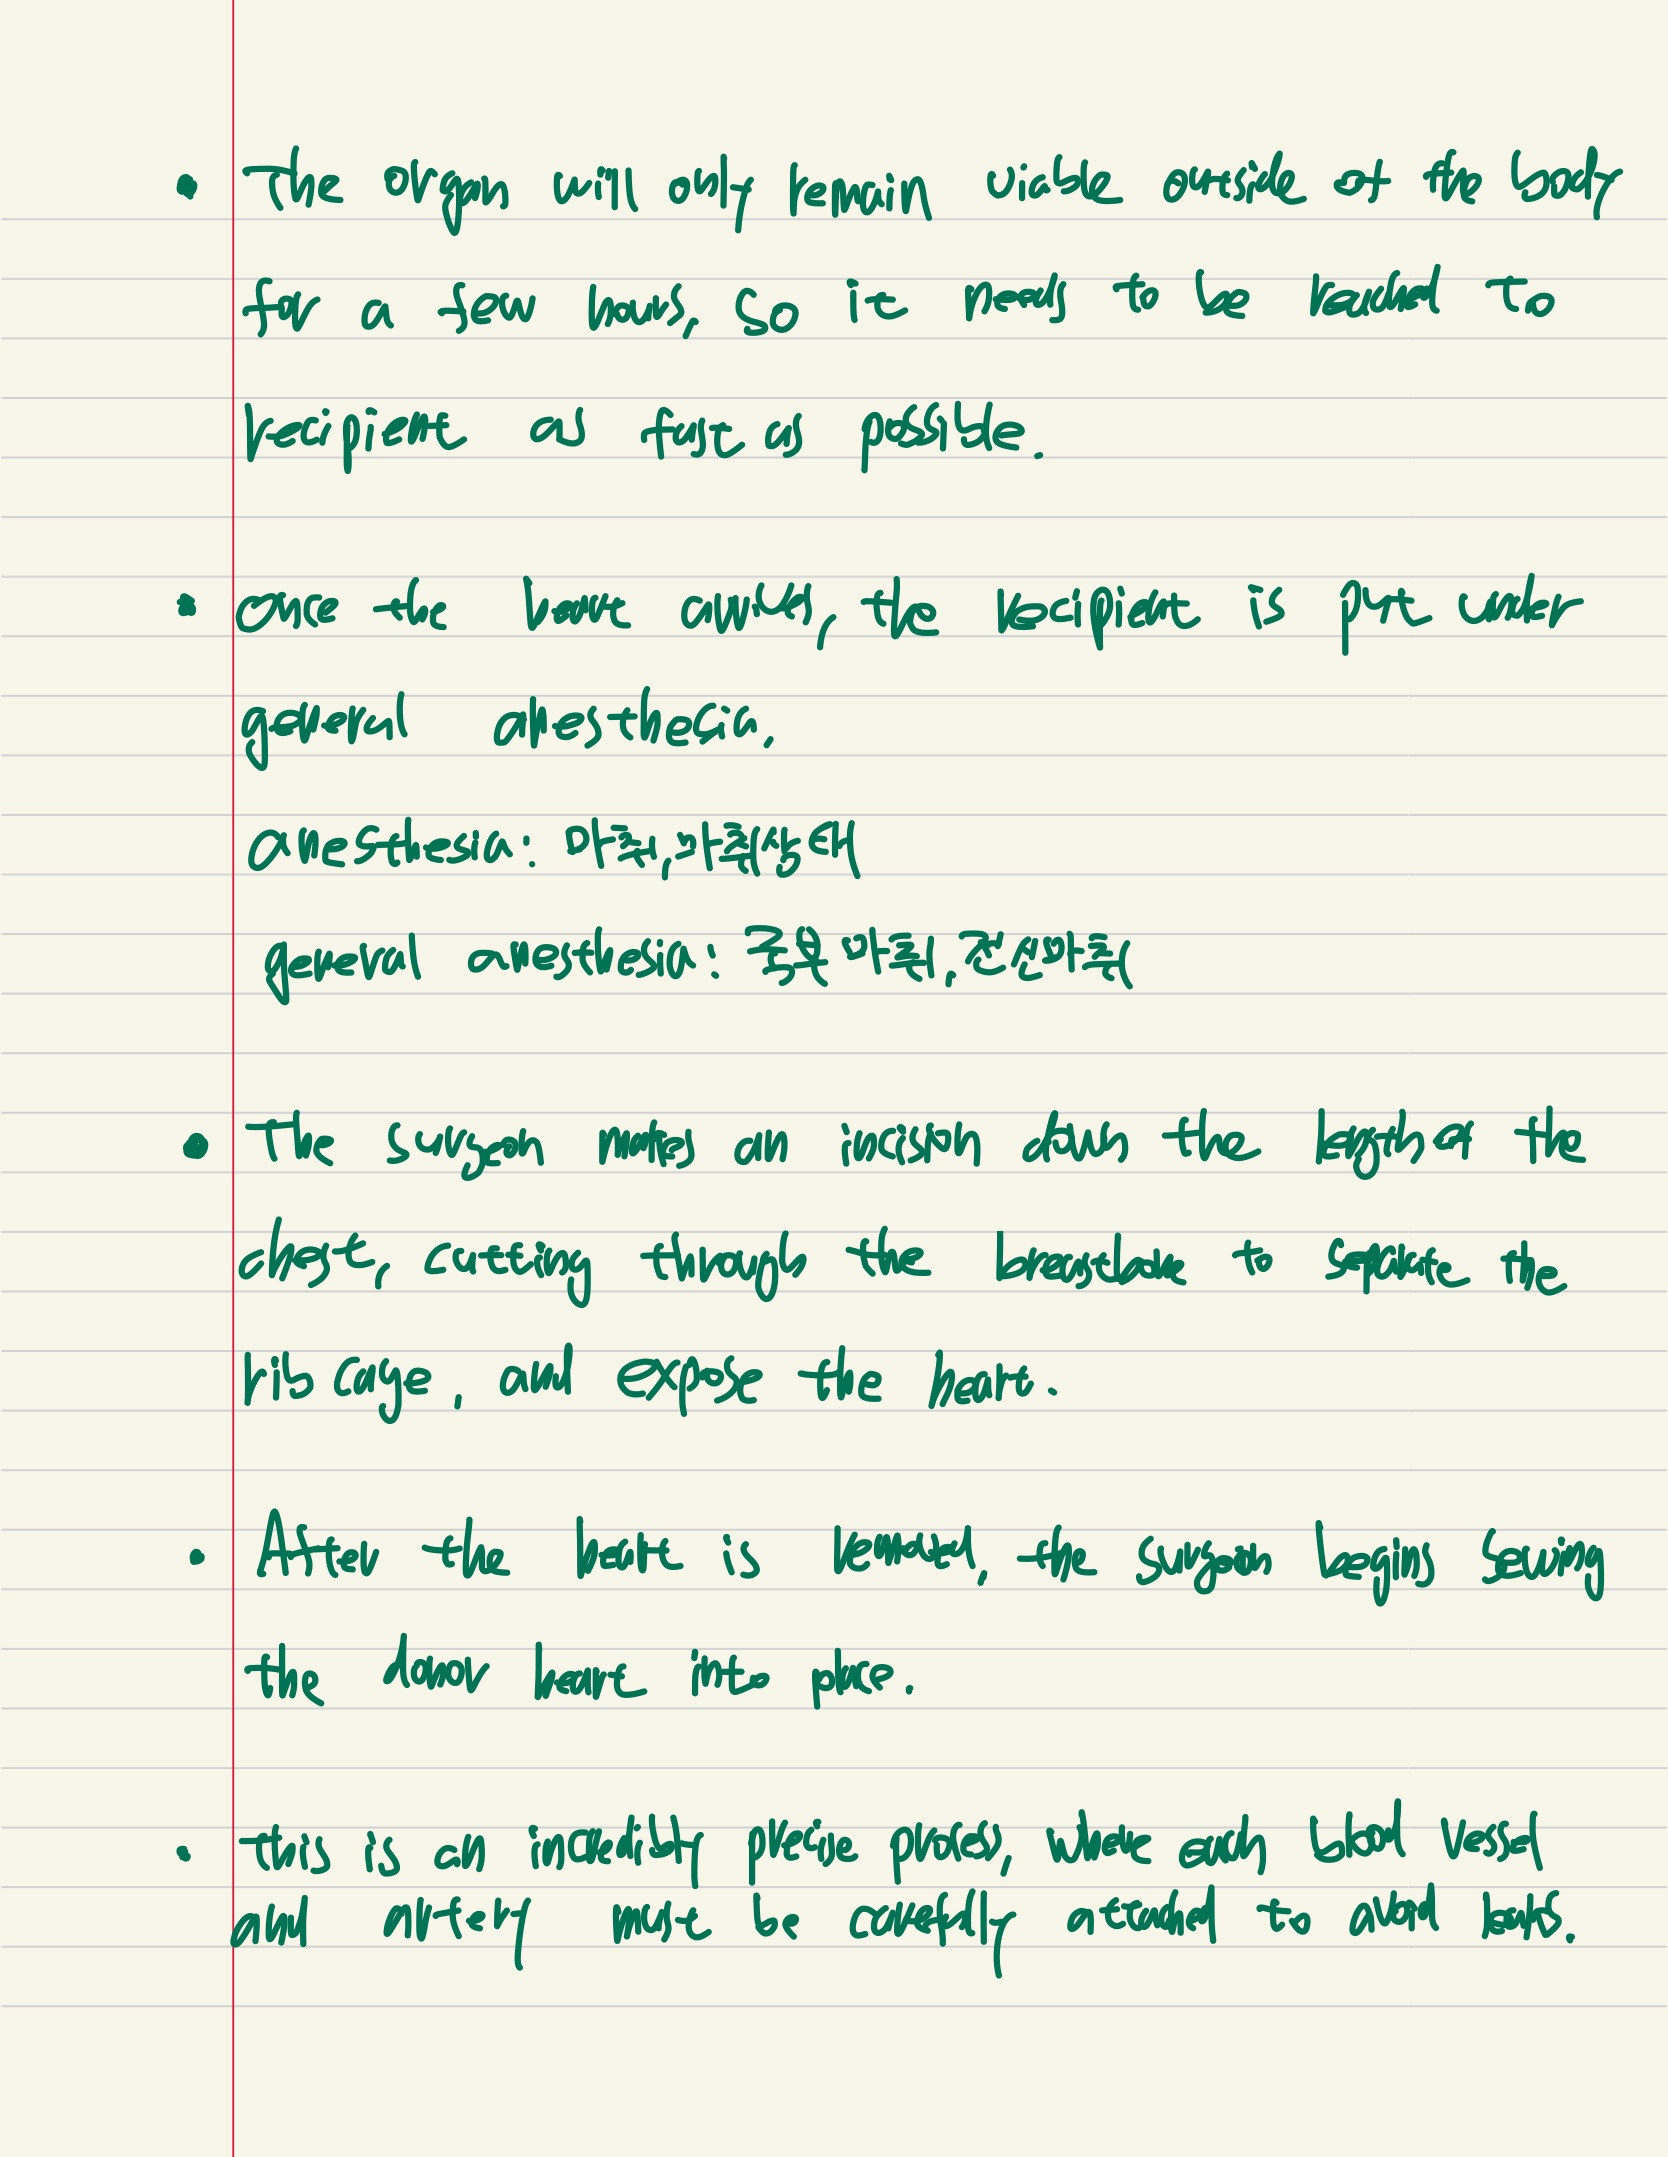 • The organ will only remain viable outside of the body
for a few hours, so it needs to be reached to
recipient as fast as possible.
• Once the heart arrives, the recipient is put under
general anesthesia.
anesthesia: 마취, 마취상태
general anesthesia: 국부 마취, 전신마취
• The surgeon makes an incision down the length of the
chest, cutting through the breastbone to separate the
rib cage, and expose the heart.
• After the heart is removed, the surgeon begins sewing
the donor heart into place.
• This is an incredibly precise process, where each blood vessel
and artery must be carefully attached to avoid leaks.